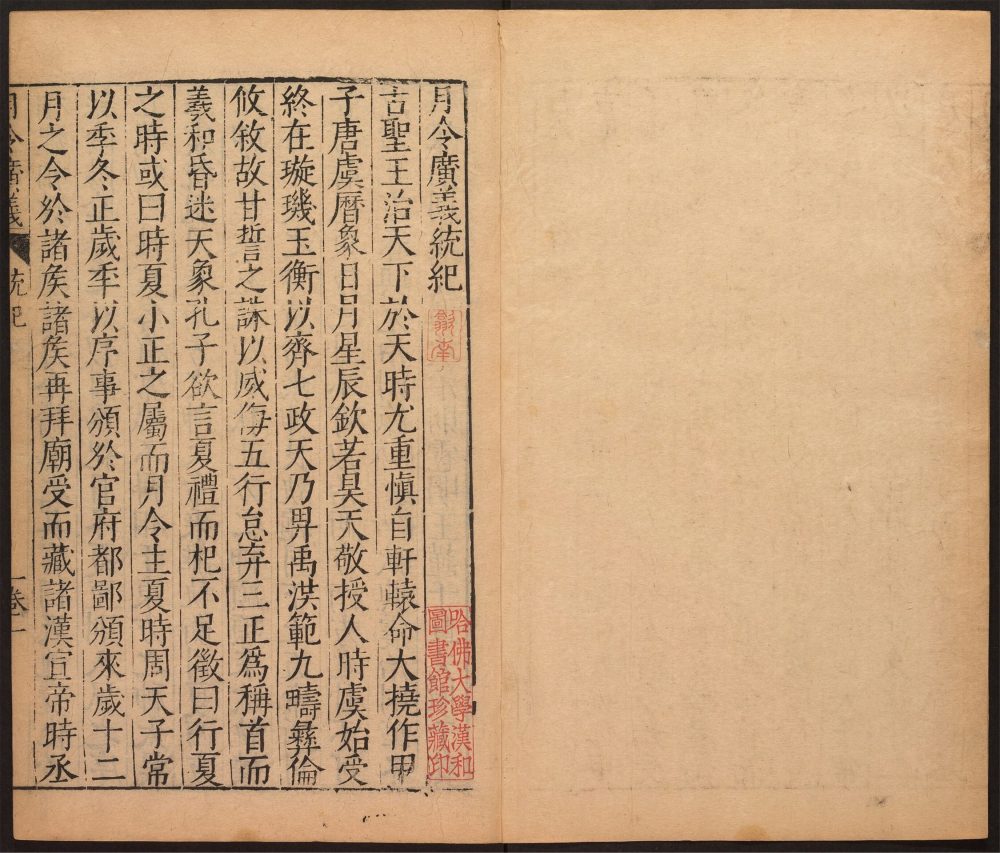 月令廣義統紀
古聖王治天下於天時尤重愼自軒轅命大撓作甲
子唐虞曆象日月星辰欽若昊天敬授人時虞始受
終在璇璣玉衡以齊七政天乃畀禹洪範九疇彝倫
攸敘故甘誓之誅以威侮五行怠弃三正爲稱首而
羲和昏迷天象孔子欲言夏禮而杞不足徵曰行夏
之時或曰時夏小正之屬而月令主夏時周天子常
以季冬正歲季以序事頒於官府都鄙頒來歲十二
月之令於諸矦諸矦再拜廟受而藏諸漢宣帝時丞
月令廣義 統紀 卷一
哈佛大學漢和
圖書館珍藏印